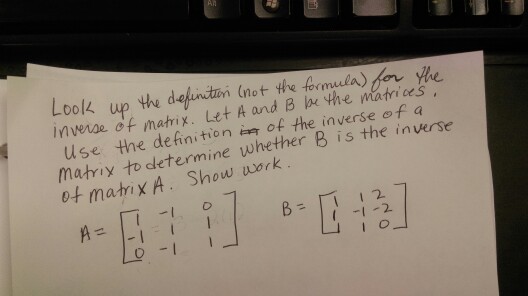 Look up the definition (not the formula) for the
inverse of matrix. Let A and B be the matrices.
Use the definition of the inverse of a
matrix to determine whether B is the inverse
of matrix A. Show work.
A = [ 1 -1 0 B = [ 1 1 2
-1 1 1 1 -1 -2
0 -1 1 ] 1 1 0 ]